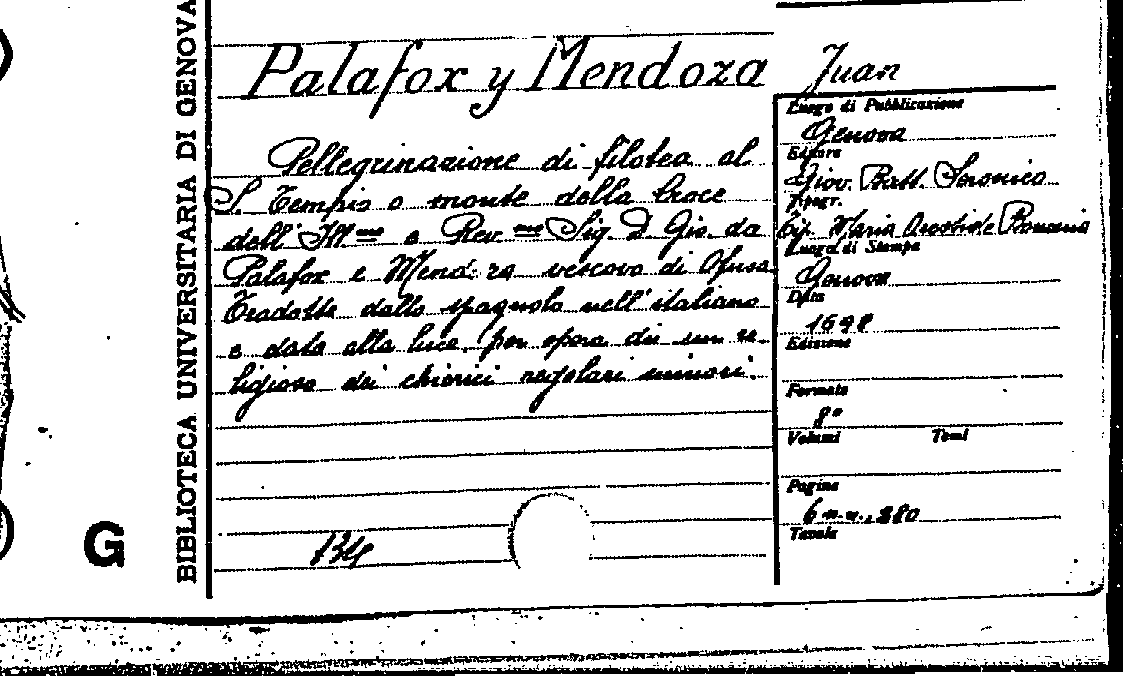 BIBLIOTECA UNIVERSITARIA DI GENOVA
G
Palafox y Mendoza Juan
Pellegrinazione di filotea al
S. Tempio o monte della Croce
dell' Ill.mo e Rev.mo Sig. D. Gio. da
Palafox e Mendoza vescovo di Osma
Tradotte dallo spagnolo nell'italiano
e data alla luce per opera di un re-
ligioso dei chierici regolari minori.
134
Luogo di Pubblicazione
Genova
Editore
Giov. Batt.
Tipogr.
Tip. Maria
Luogo di Stampa
Genova
Data
1698
Edizione
Formato
8°
Volumi Tomi
Pagine
6 n.n., 280
Tavole